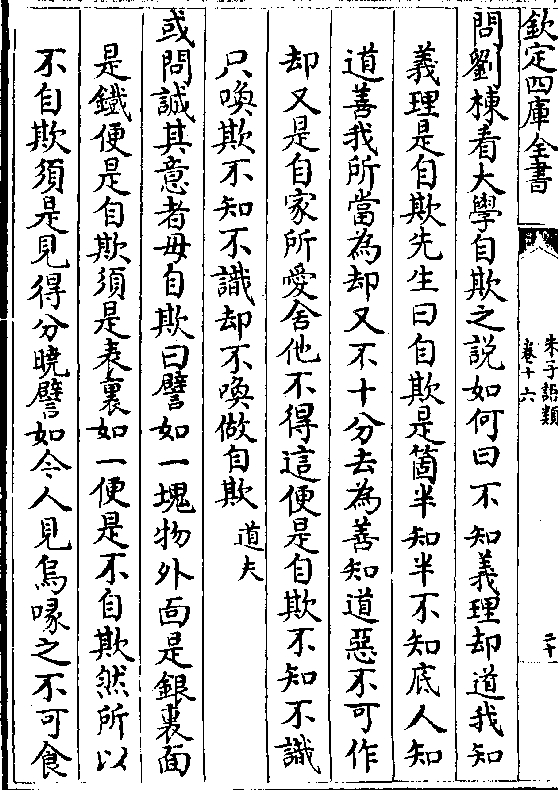 欽定四庫全書
朱子語類
卷十六
二十
問劉棟看大學自欺之説如何曰不知義理却道我知
義理是自欺先生曰自欺是箇半知半不知底人知
道善我所當為却又不十分去為善知道惡不可作
却又是自家所愛舍他不得這便是自欺不知不識
只喚欺不知不識却不喚做自欺 道夫
或問誠其意者毋自欺曰譬如一塊物外面是銀裏面
是鐵便是自欺須是表裏如一便是不自欺然所以
不自欺須是見得分曉譬如今人見烏喙之不可食